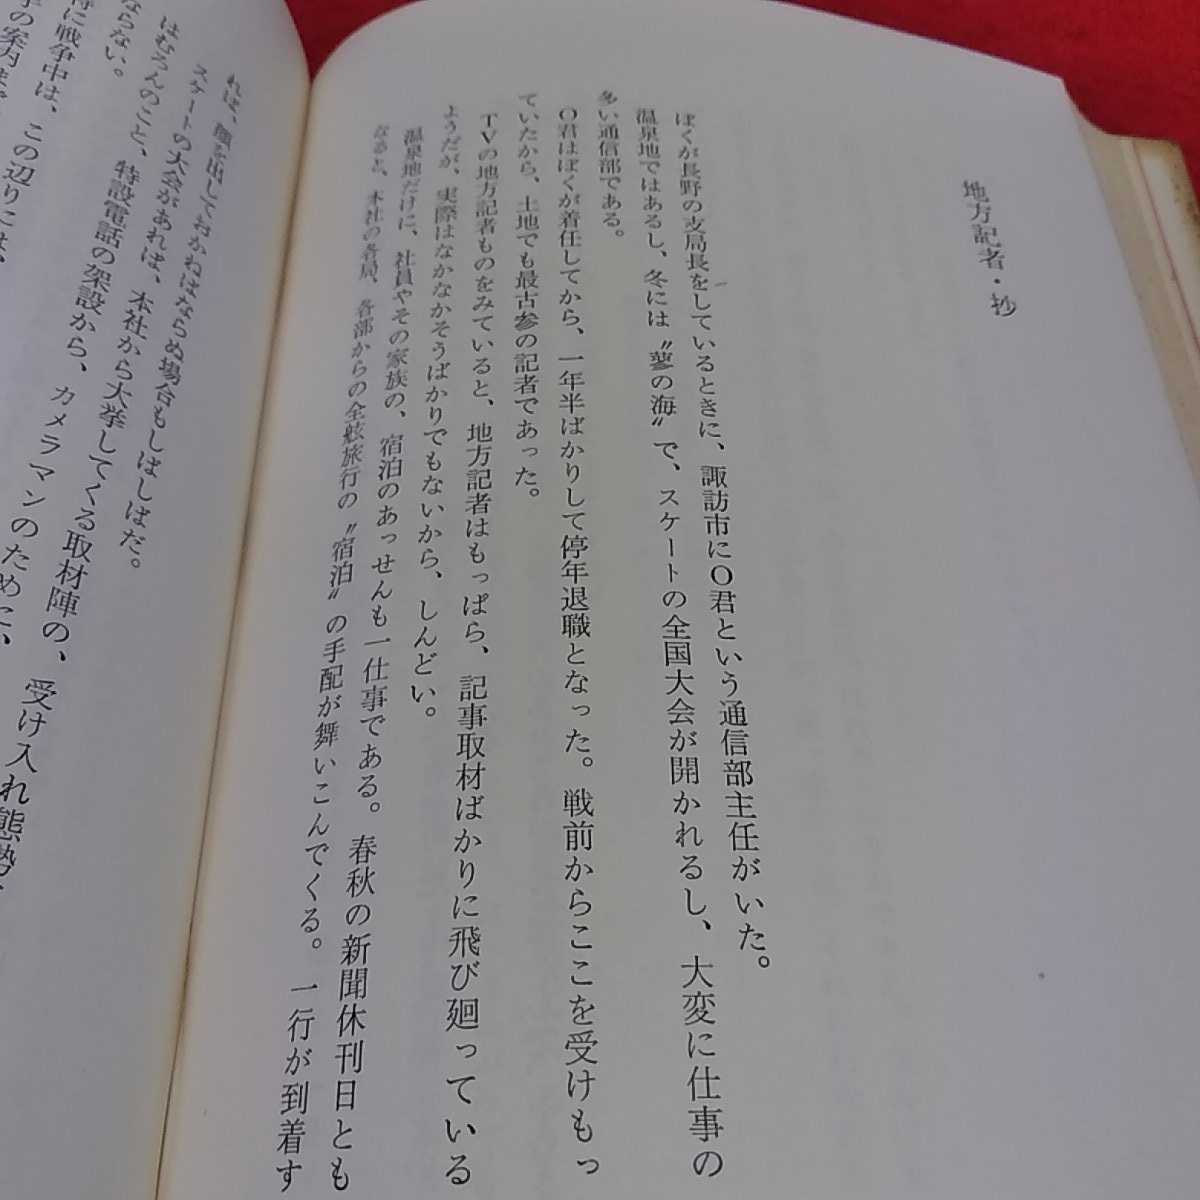 地方記者・抄
ぼくが長野の支局長をしているときに、諏訪市にO君という通信部主任がいた。
温泉地ではあるし、冬には〝蓼の海〟で、スケートの全国大会が開かれるし、大変に仕事の
多い通信部である。
O君はぼくが着任してから、一年半ばかりして停年退職となった。戦前からここを受けもっ
ていたから、土地でも最古参の記者であった。
TVの地方記者ものをみていると、地方記者はもっぱら、記事取材ばかりに飛び廻っている
ようだが、実際はなかなかそうばかりでもないから、しんどい。
温泉地だけに、社員やその家族の、宿泊のあっせんも一仕事である。春秋の新聞休刊日とも
なると、本社の各局、各部からの全舷旅行の〝宿泊〟の手配が舞いこんでくる。一行が到着す
れば、顔を出しておかねばならぬ場合もしばしばだ。
スケートの大会があれば、本社から大挙してくる取材陣の、受け入れ態勢
はむろんのこと、特設電話の架設から、カメラマンのために、
ならない。
に戦争中は、この辺りには、
の案内